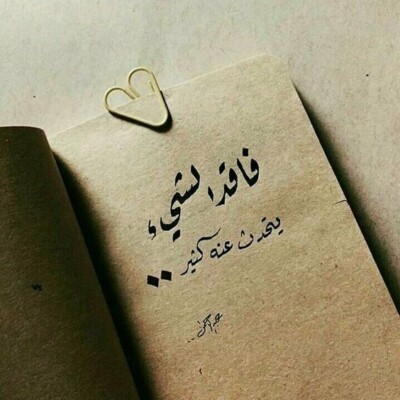 فاقد الشيء
يتحدث عنه كثير ..